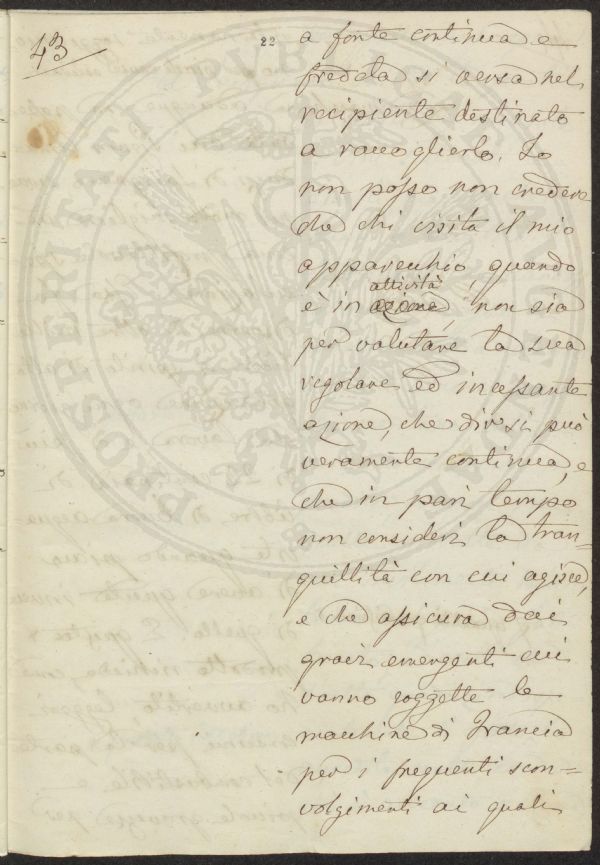 43
22
a fonte continua e
fredda si versa nel
recipiente destinato
a raccoglierlo. Io
non posso non credere
che chi visita il mio
apparecchio, quando
attività
è in azione, non sia
per valutare la sua
regolare ed incessante
azione, che dir si può
veramente continua, e
che in pari tempo
non consideri la tran=
quillità con cui agisce,
e che assicura dai
gravi emergenti cui
vanno soggette le
macchine di Francia
per i frequenti scon=
volgimenti ai quali